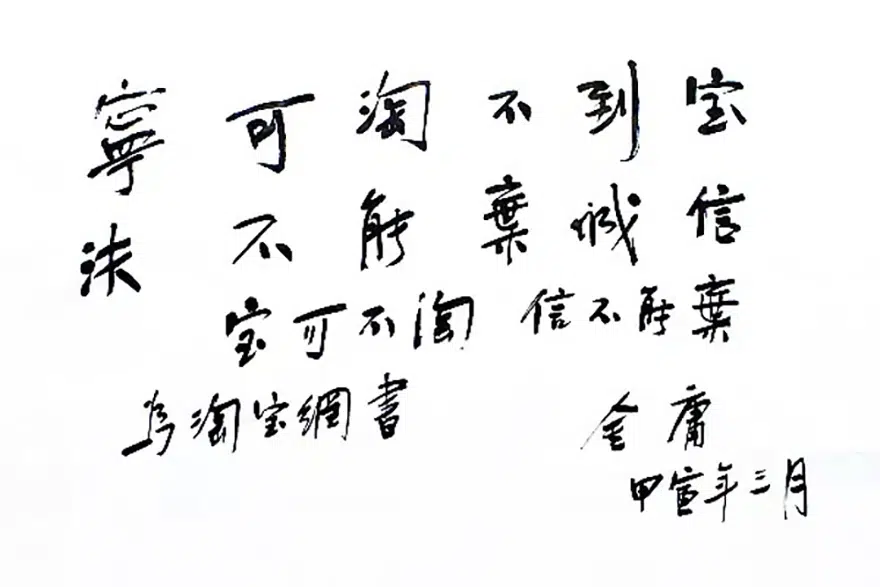 寧可淘不到宝
決不能棄誠信
宝可不淘 信不能棄
為淘宝網書
金庸
甲寅年三月